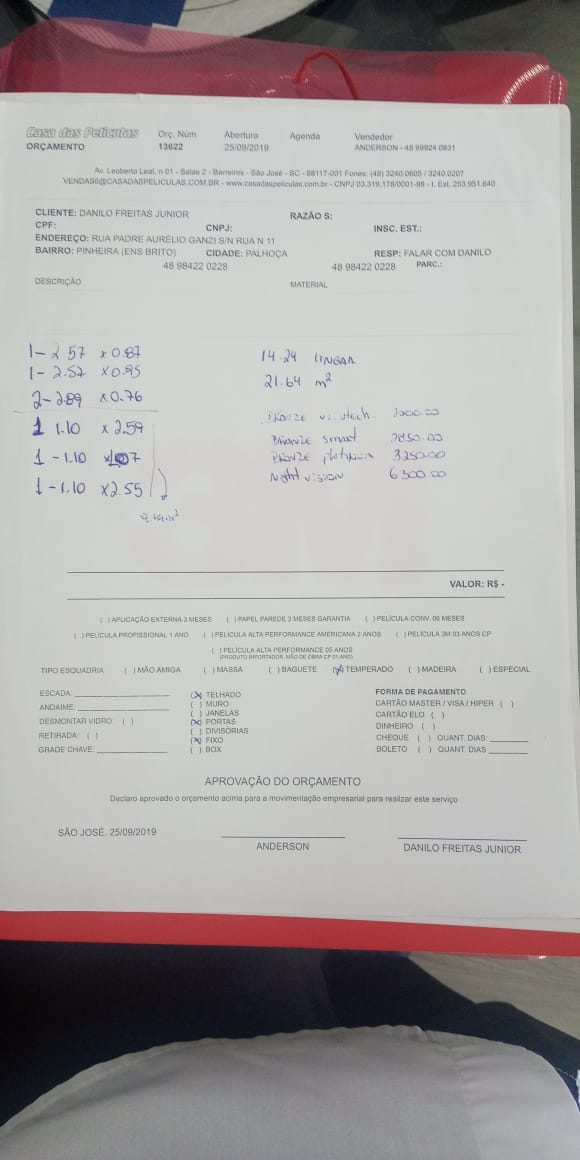 Casa das Películas Orç. Núm Abertura Agenda Vendedor
ORÇAMENTO 13622 25/09/2019 ANDERSON - 48 99924 0831
Av. Leoberto Leal, n 01 - Salas 2 - Barreiros - São José - SC - 88117-001 Fones: (48) 3240.0605 / 3240.0207
VENDAS6@CASADASPELICULAS.COM.BR - www.casadaspeliculas.com.br - CNPJ 03.319.178/0001-98 - I. Est. 253.951.640
CLIENTE: DANILO FREITAS JUNIOR RAZÃO S:
CPF: CNPJ: INSC. EST.:
ENDEREÇO: RUA PADRE AURÉLIO GANZI S/N RUA N 11
BAIRRO: PINHEIRA (ENS BRITO) CIDADE: PALHOÇA RESP: FALAR COM DANILO
48 98422 0228 48 98422 0228 PARC.:
DESCRIÇÃO MATERIAL
1- 2.57 x 0.87 14.24 LINEAR
1- 2.52 x 0.95 21.64 m²
2- 2.89 x 0.76
1 1.10 x 2.59 BRONZE
1 - 1.10 BRONZE smart 2850.00
1 - 1.10 x 2.55 BRONZE platinum 3250.00
Night vision 6300.00
VALOR: R$ -
( ) APLICAÇÃO EXTERNA 3 MESES ( ) PAPEL PAREDE 3 MESES GARANTIA ( ) PELÍCULA CONV. 06 MESES
( ) PELÍCULA PROFISSIONAL 1 ANO ( ) PELÍCULA ALTA PERFORMANCE AMERICANA 2 ANOS ( ) PELÍCULA 3M 03 ANOS CP
( ) PELÍCULA ALTA PERFORMANCE 05 ANOS
(PRODUTO IMPORTADOR, MÃO DE OBRA CP 01 ANO)
TIPO ESQUADRIA ( ) MÃO AMIGA ( ) MASSA ( ) BAGUETE (X) TEMPERADO ( ) MADEIRA ( ) ESPECIAL
ESCADA: (X) TELHADO FORMA DE PAGAMENTO
ANDAIME: ( ) MURO CARTÃO MASTER / VISA / HIPER ( )
( ) JANELAS CARTÃO ELO ( )
DESMONTAR VIDRO: ( ) (X) PORTAS DINHEIRO ( )
RETIRADA: ( ) ( ) DIVISÓRIAS CHEQUE ( ) QUANT. DIAS:
GRADE CHAVE: (X) FIXO BOLETO ( ) QUANT. DIAS
( ) BOX
APROVAÇÃO DO ORÇAMENTO
Declaro aprovado o orçamento acima para a movimentação empresarial para realizar este serviço
SÃO JOSÉ, 25/09/2019
ANDERSON DANILO FREITAS JUNIOR